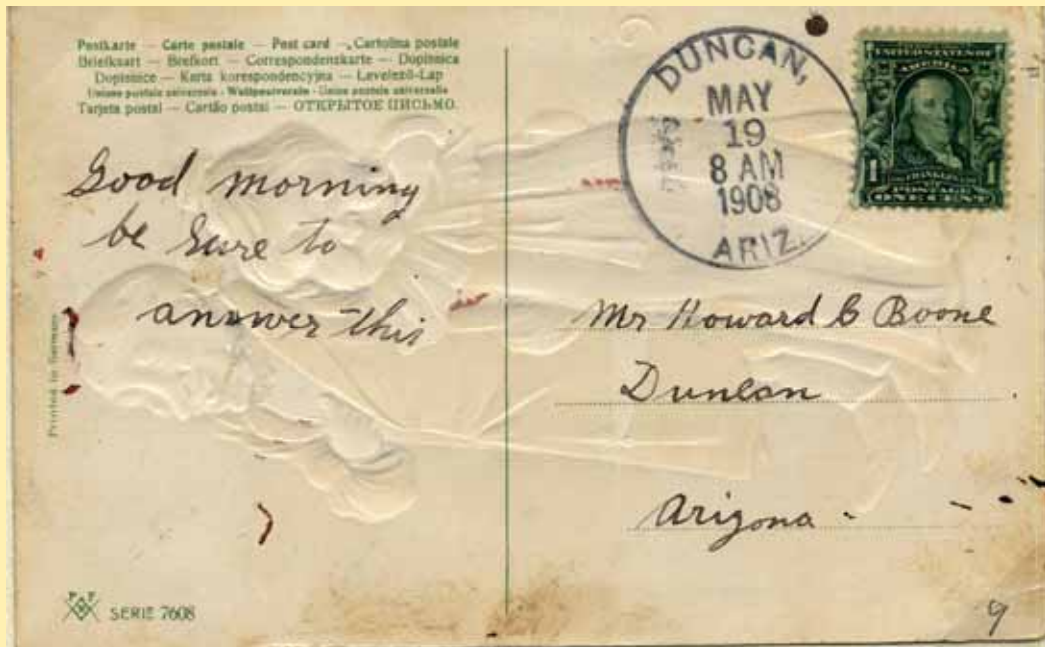 Postkarte — Carte postale — Post card — Cartolina postale
Briefkaart — Brefkort — Correspondenzkarte — Dopisnica
Dopisnice — Karta korespondencyjna — Levelező-Lap
Unione postale universale - Weltpostverein - Union postale universelle
Tarjeta postal — Cartão postal — ОТКРЫТОЕ ПИСЬМО.
Good morning
be sure to
answer this
Printed in Germany
P F
SERIE 7608
DUNCAN,
MAY
19
8 AM
1908
ARIZ.
UNITED STATES OF
AMERICA
1 1
FRANKLIN
POSTAGE
ONE CENT
Mr Howard C Boone
Duncan
Arizona
9